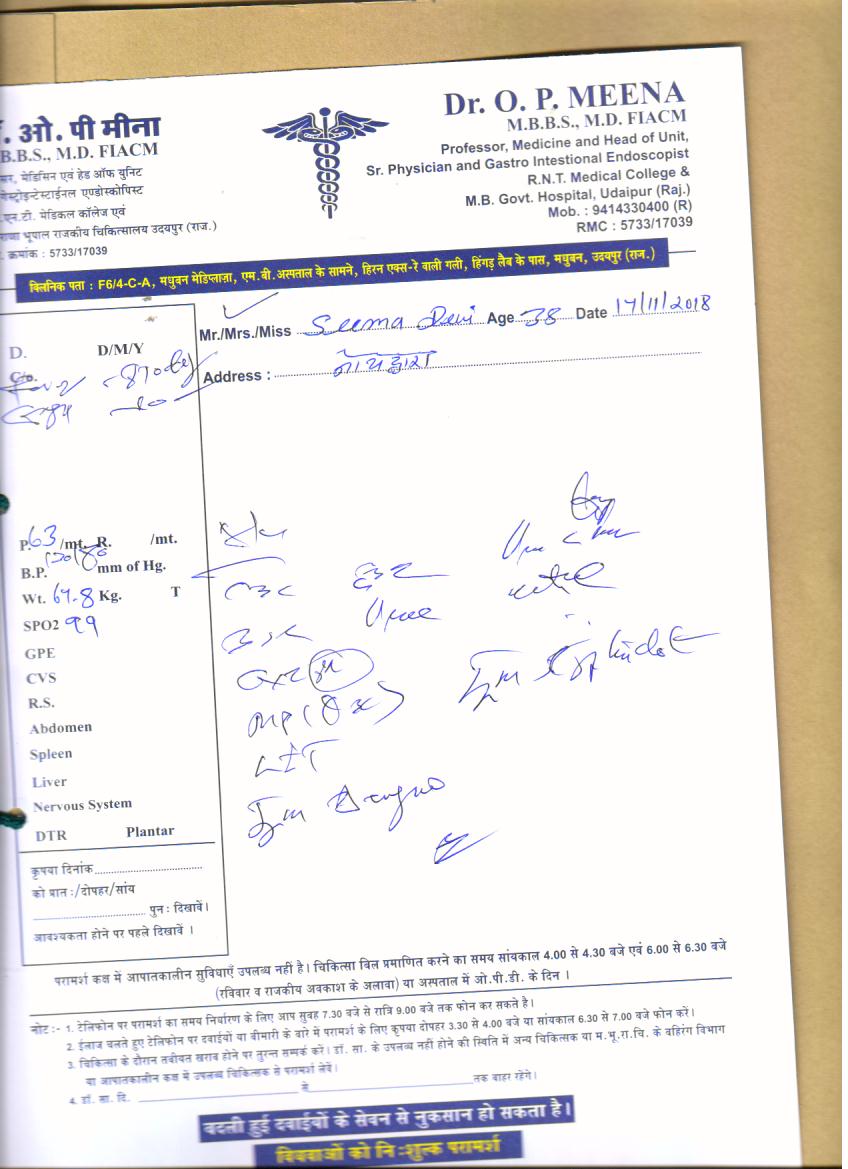 . ओ. पी मीना
B.B.S., M.D. FIACM
सर, मेडिसिन एवं हेड ऑफ युनिट
गेस्ट्रोइन्टेस्टाईनल एण्डोस्कोपिस्ट
.एन.टी. मेडिकल कॉलेज एवं
राजा भूपाल राजकीय चिकित्सालय उदयपुर (राज.)
. क्रमांक : 5733/17039
Dr. O. P. MEENA
M.B.B.S., M.D. FIACM
Professor, Medicine and Head of Unit,
Sr. Physician and Gastro Intestional Endoscopist
R.N.T. Medical College &
M.B. Govt. Hospital, Udaipur (Raj.)
Mob. : 9414330400 (R)
RMC : 5733/17039
क्लिनिक पता : F6/4-C-A, मधुबन मेडिप्लाज़ा, एम.बी.अस्पताल के सामने, हिरन एक्स-रे वाली गली, हिंगड़ लैब के पास, मधुबन, उदयपुर (राज.)
Mr./Mrs./Miss Seema Devi Age 38 Date 17/11/2018
Address : नाथद्वारा
D. D/M/Y
C/o.
P. 63 /mt. R. /mt.
B.P. mm of Hg.
Wt. 67.8 Kg. T
SPO2 99
GPE
CVS
R.S.
Abdomen
Spleen
Liver
Nervous System
DTR Plantar
CBC
Urine
MP
LFT
Igm Dengue
कृपया दिनांक
को प्रात :/दोपहर/सांय
पुन: दिखावें।
आवश्यकता होने पर पहले दिखावें ।
परामर्श कक्ष में आपातकालीन सुविधाएँ उपलब्ध नहीं है। चिकित्सा बिल प्रमाणित करने का समय सांयकाल 4.00 से 4.30 बजे एवं 6.00 से 6.30 बजे
(रविवार व राजकीय अवकाश के अलावा) या अस्पताल में ओ.पी.डी. के दिन ।
नोट :- 1. टेलिफोन पर परामर्श का समय निर्धारण के लिए आप सुबह 7.30 बजे से रात्रि 9.00 बजे तक फोन कर सकते है।
2. ईलाज चलते हुए टेलिफोन पर दवाईयों या बीमारी के बारे में परामर्श के लिए कृपया दोपहर 3.30 से 4.00 बजे या सांयकाल 6.30 से 7.00 बजे फोन करें।
3. चिकित्सा के दौरान तबीयत खराब होने पर तुरन्त सम्पर्क करें। डॉ. सा. के उपलब्ध नहीं होने की स्थिति में अन्य चिकित्सक या म.भू.रा.चि. के बहिरंग विभाग
या आपातकालीन कक्ष में उपलब्ध चिकित्सक से परामर्श लेवें।
4. डॉ. सा. दि. से तक बाहर रहेंगे।
बदली हुई दवाईयों के सेवन से नुकसान हो सकता है।
विधवाओं को नि:शुल्क परामर्श